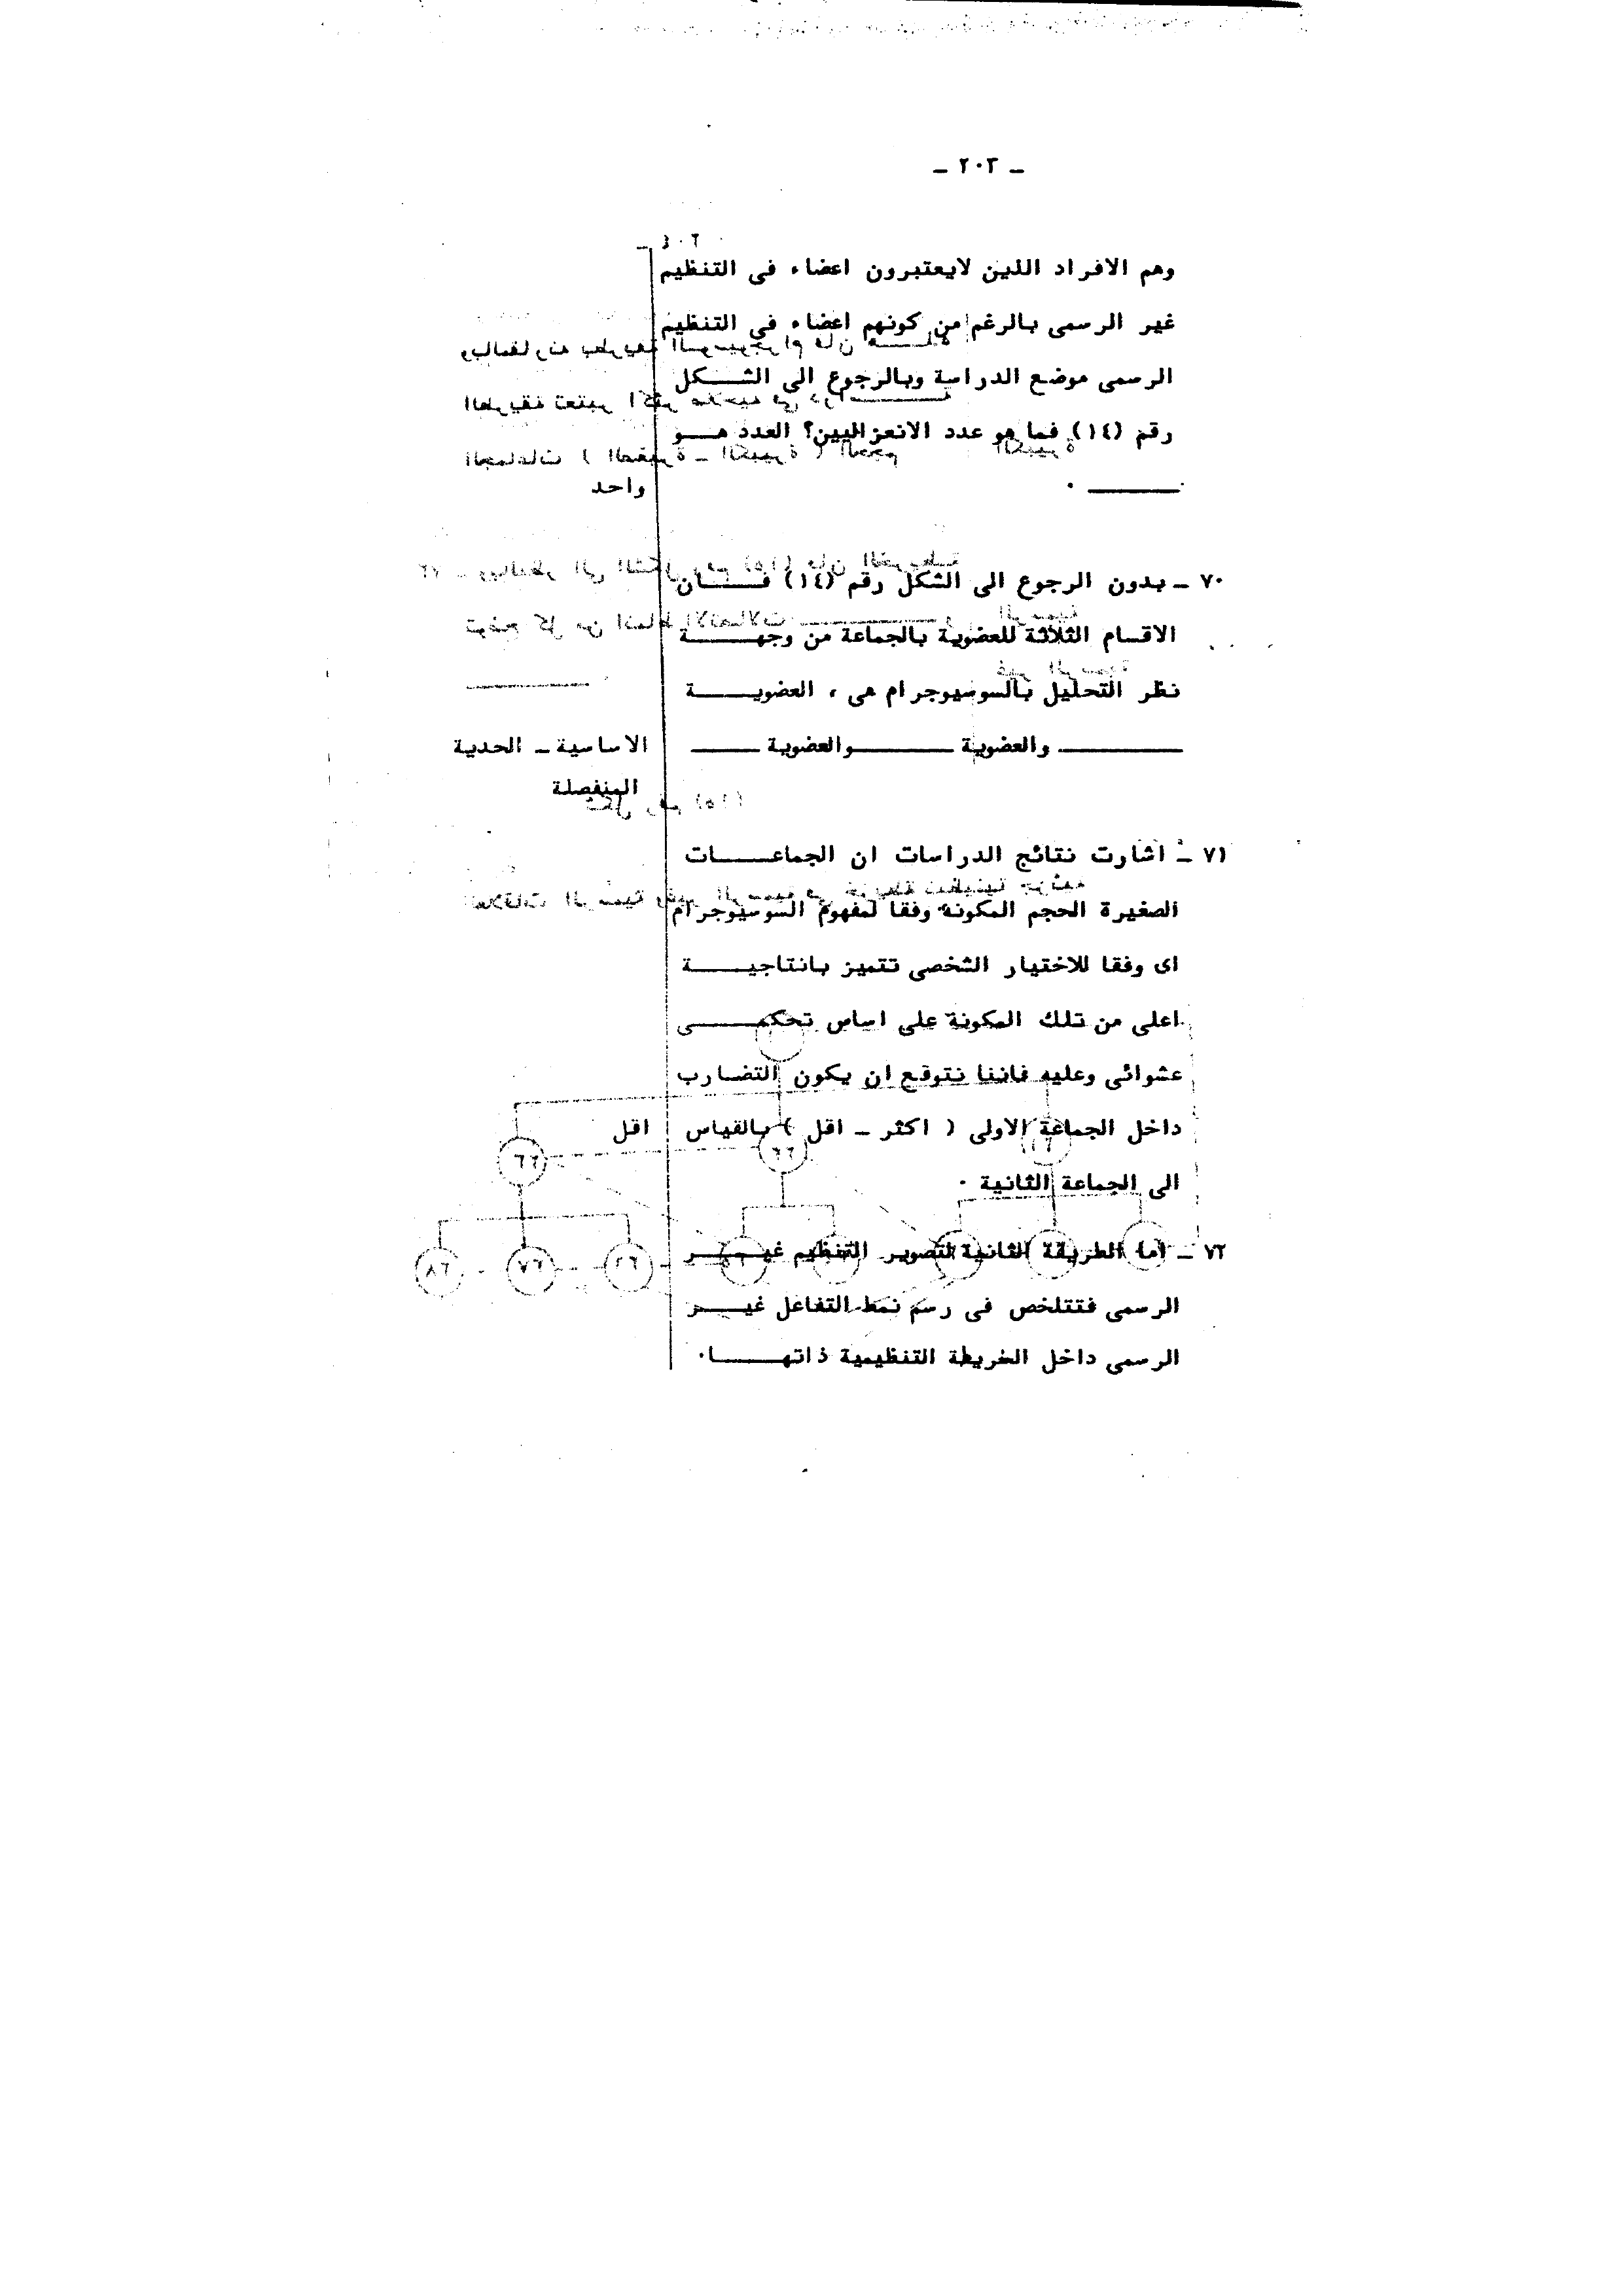 ـ ٢٠٣ ـ
وهم الافراد الذين لايعتبرون اعضاء فى التنظيم
غير الرسمى بالرغم من كونهم اعضاء فى التنظيم
الرسمى موضع الدراسة وبالرجوع الى الشـــكل
رقم (١٤) فما هو عدد الانعزاليين؟ العدد هـــو
ـــــــــ ٠ واحد
٧٠ ـ بدون الرجوع الى الشكل رقم (١٤) فــــان
الاقسام الثلاثة للعضوية بالجماعة من وجهــــة
نظر التحليل بالسوسيوجرام هى ، العضويــــة
ـــــــــ والعضوية ـــــــــ والعضوية ـــــــــ الاساسية ـ الحدية
المنفصلة
٧١ ـ اشارت نتائج الدراسات ان الجماعــــات
الصغيرة الحجم المكونه وفقا لمفهوم السوسيوجرام
اى وفقا للاختيار الشخصى تتميز بانتاجيــــة
اعلى من تلك المكونة على اساس تحكمــــى
عشوائى وعليه فاننا نتوقع ان يكون التضارب
داخل الجماعة الاولى ( اكثر ـ اقل ) بالقياس اقل
الى الجماعة الثانية ٠
٧٢ ـ اما الطريقة الثانية لتصوير التنظيم غيــــر
الرسمى فتتلخص فى رسم نمط التفاعل غيــــر
الرسمى داخل الخريطة التنظيمية ذاتهــــا٠